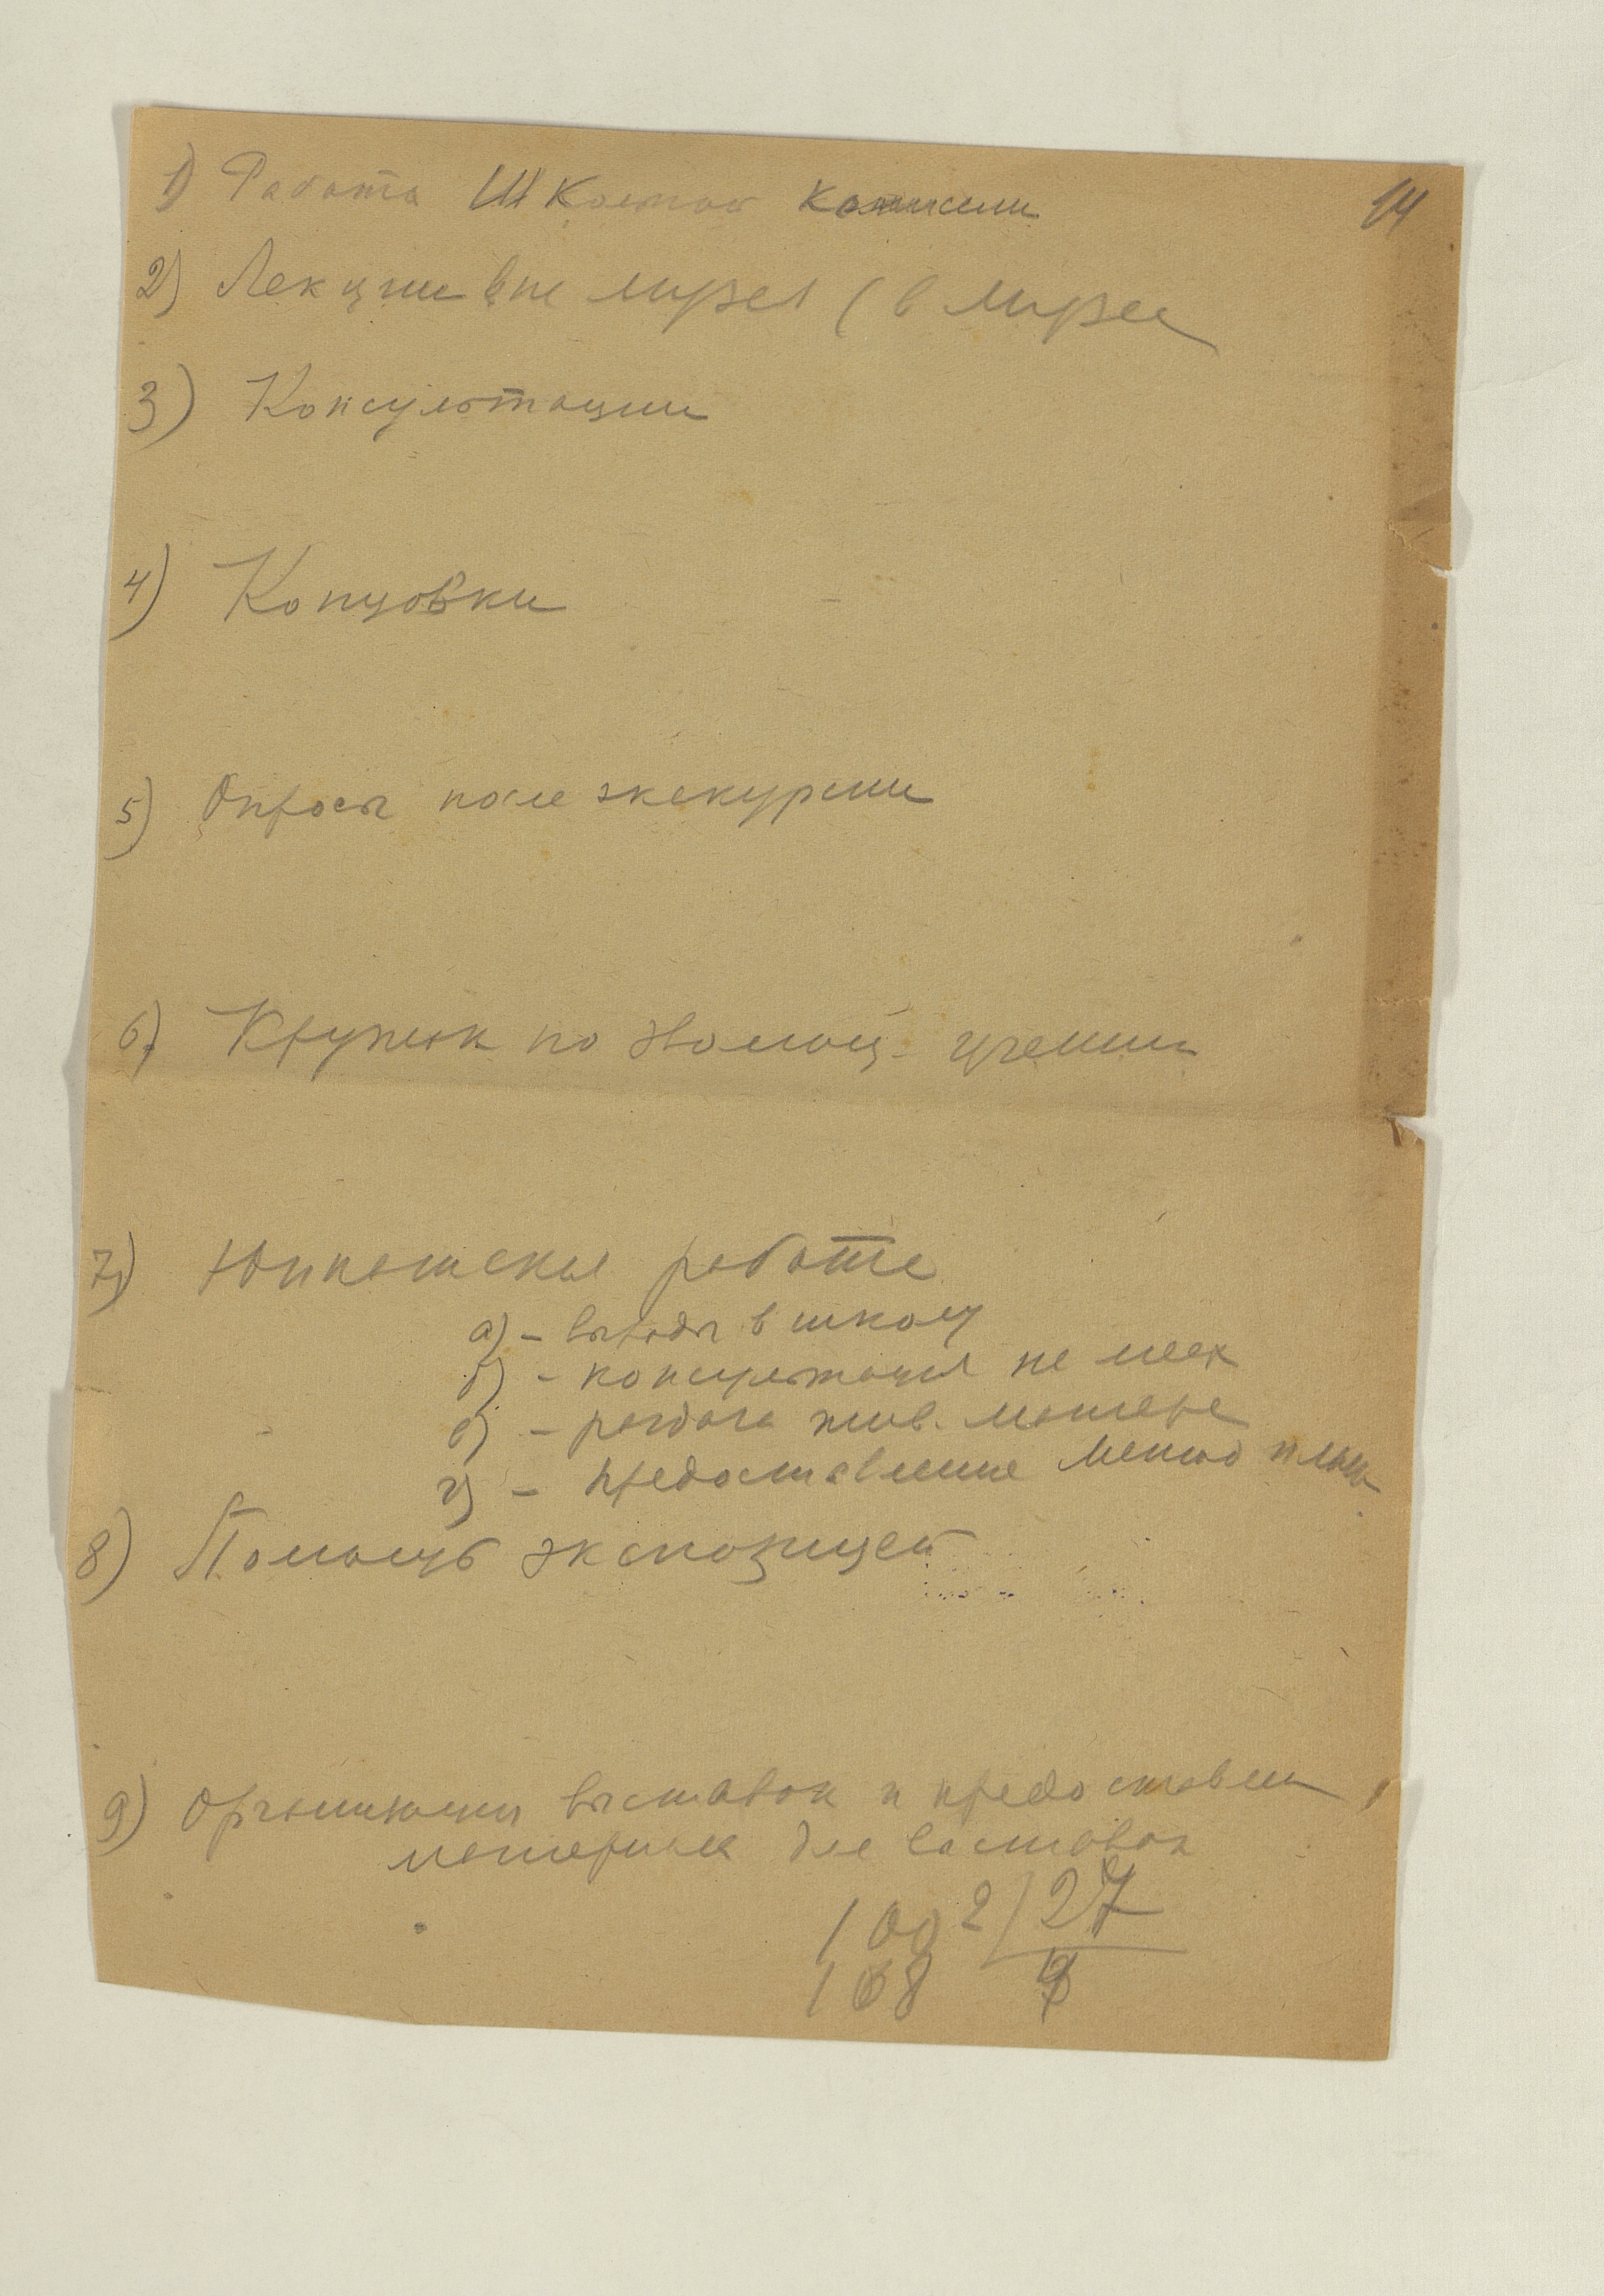 14
1) Работа Школьной комиссии
2) Лекции вне музея (в музее
3) Консультации
4) Концовки
5) Опросы после экскурсии
6) Кружок по эволюц. учению
7) Юннатская работа
а) - выходы в школу
б) - консультация на месте
в) - раздача жив. матер
г) - предоставление метод
8) Помощь экспозицией
9) Организация выставок и предоставлен
материала для выставок
1002 27
108 9